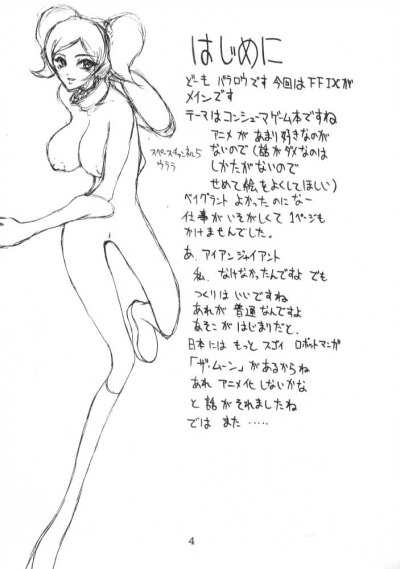 はじめに
どーも パラロウです 今回はFFIXが
メインです
テーマはコンシューマゲーム本ですね
アニメが あまり好きなのが
ないので(話がダメなのは
しかたがないので
せめて絵をよくしてほしい)
ベイグラント よかったのになー
仕事がいそがしくて1ページも
かけませんでした。
あ、アイアンジャイアント
私、なけなかったんですよ でも
つくりはいいですね
あれが 普通なんですよ
あそこが はじまりだと、
日本には もっと スゴイ ロボットマンガ
「ザ・ムーン」があるからね
あれ アニメ化しないかな
と 話がそれましたね
では また ・・・・・
スペースチャンネル5
ウララ
4